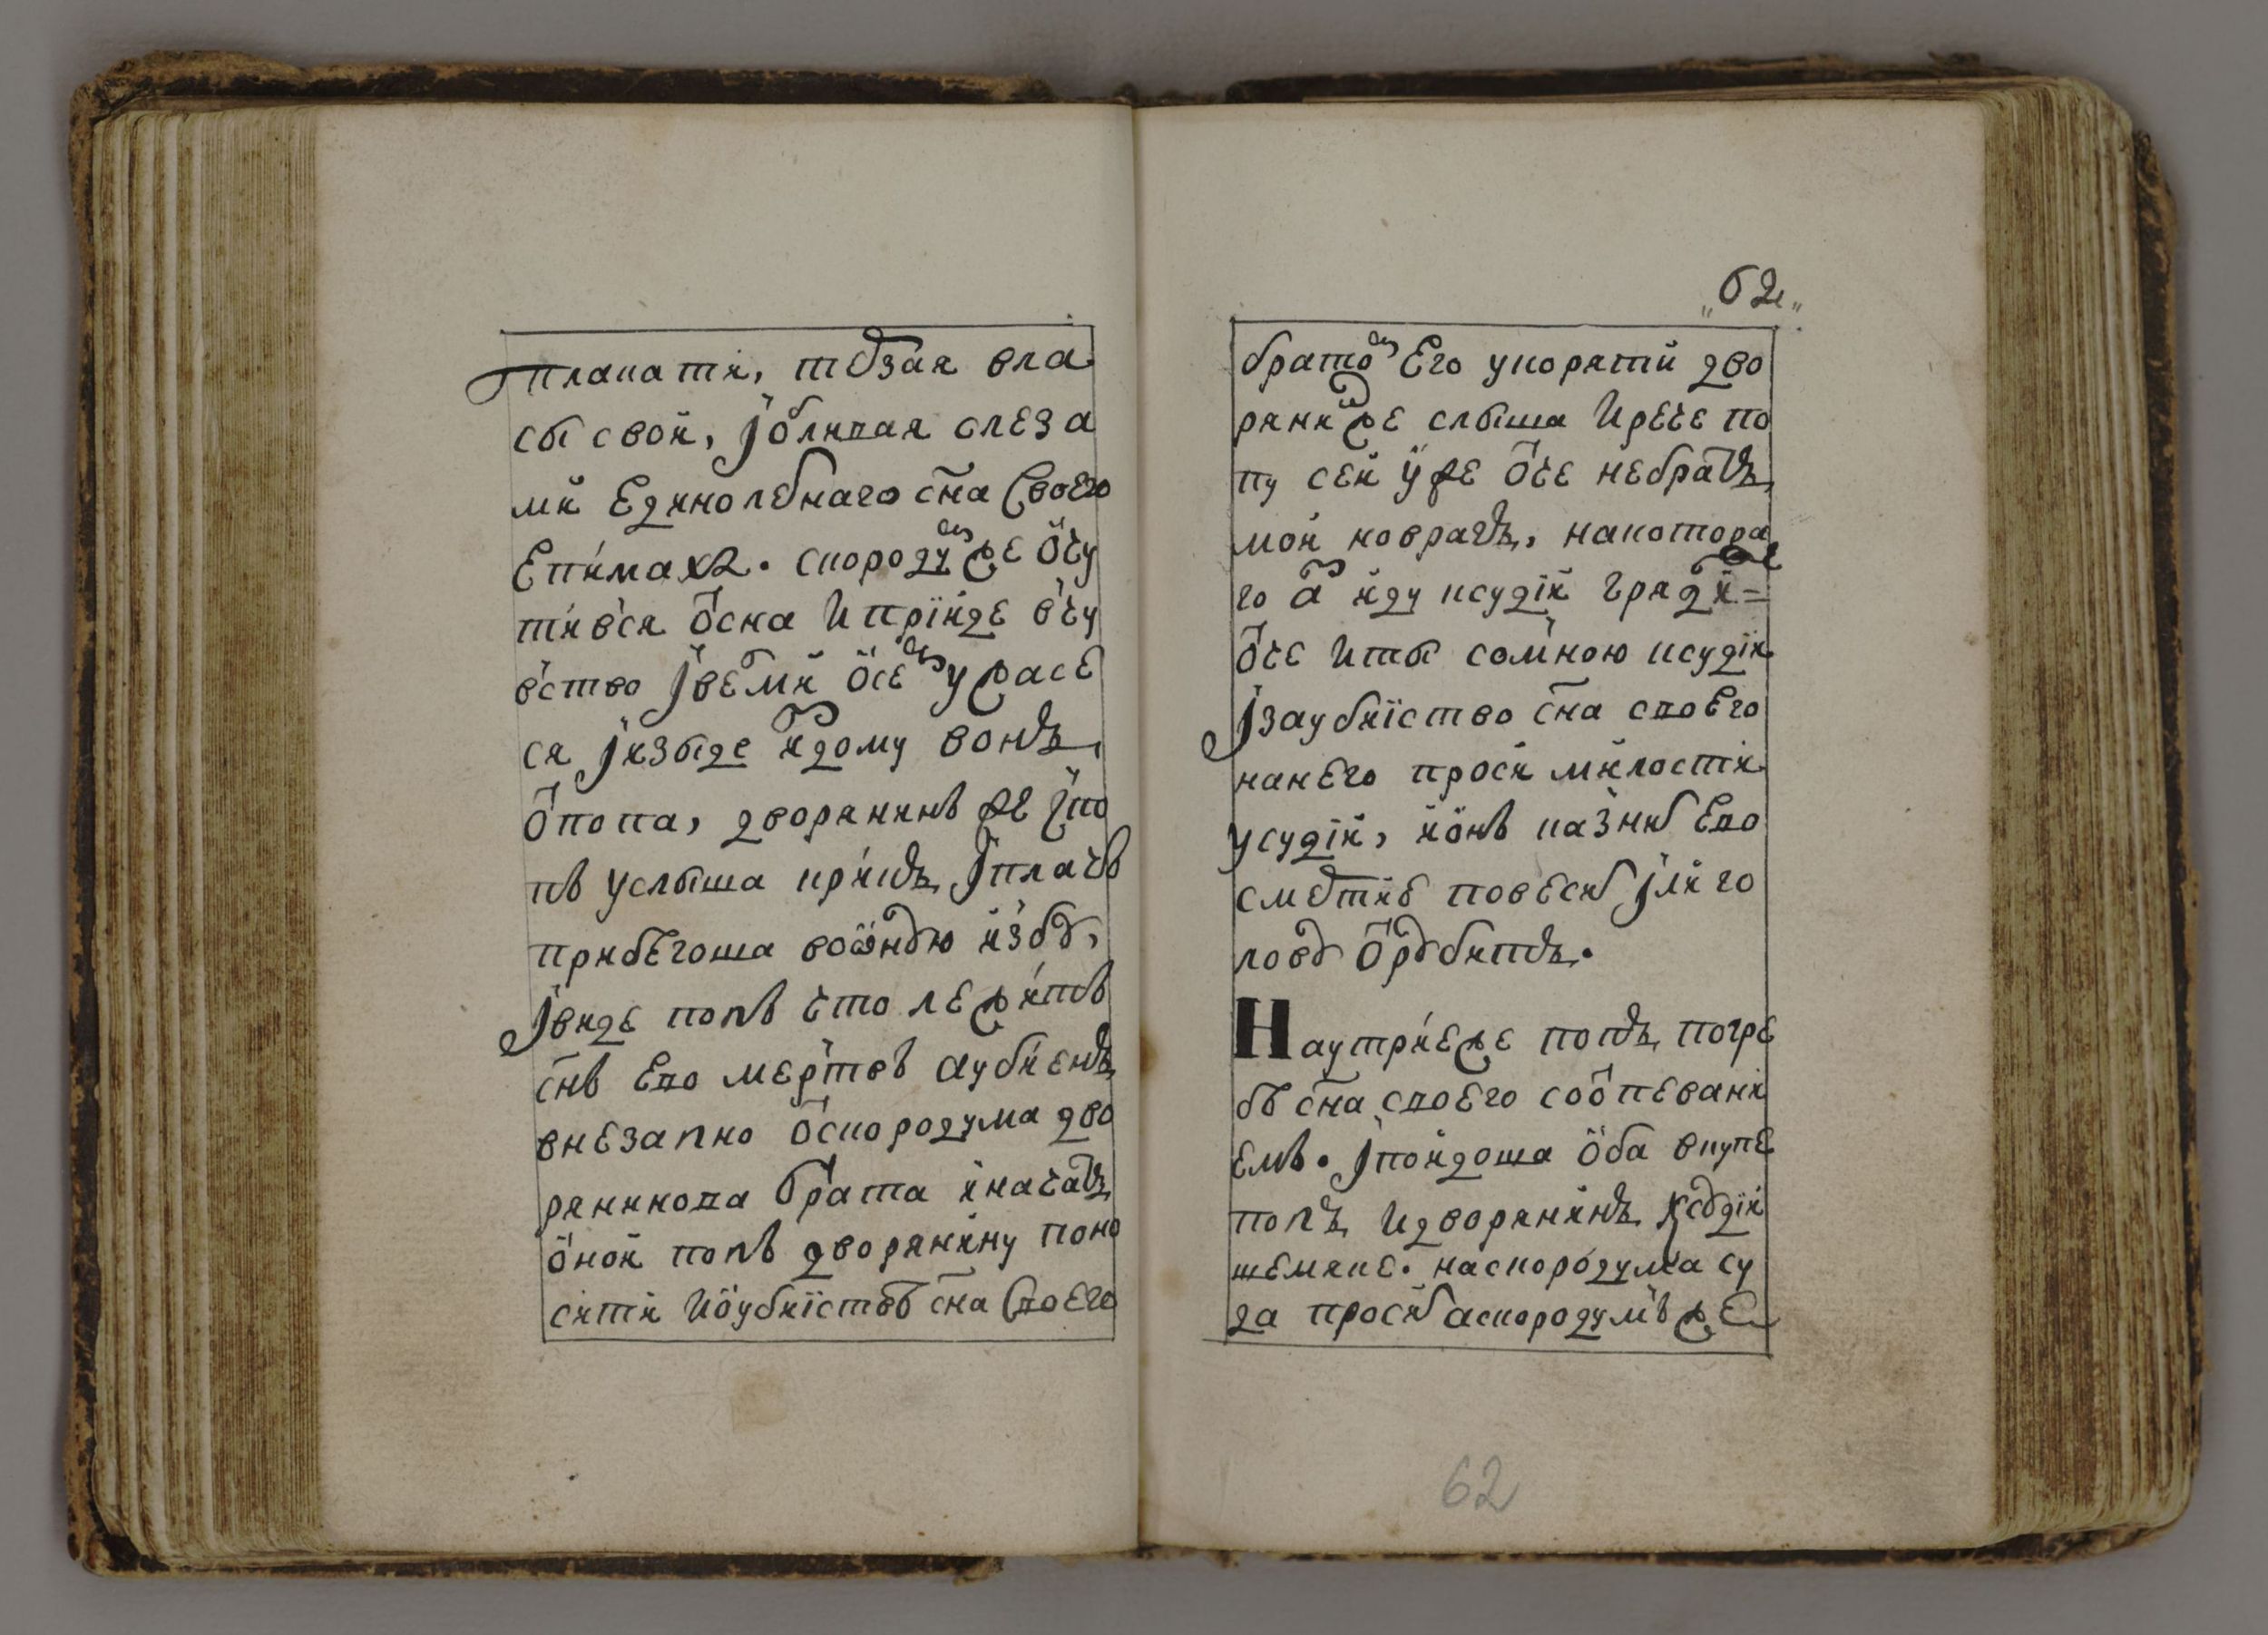 плакати, тѣрзая вла
сы свой, і обливая слеза
ми единолѣбнаго сн҃а своего
епимаха. скородумъ же очу
тивъся ѿсна и прїиде въ чу
въство і вѣлми о семъ ужасе
ся і изыде из дому вонъ
ѿ попа, дворянинъ же і по
пъ услыша крикъ і плачь
прибѣгоша во ѡную избу,
і виде попъ что лежитъ
сн҃ъ его мертвъ а убиенъ
внезапно ѿ скородума дво
рянинова брата и началъ
оной попъ дворянину поно
сити и о убиїствѣ сн҃а своего
62
братомъ его укоряти дво
рянинъ же слыша и рече по
пу сей уже ѿче не братъ
мой но врагъ, на котора
го азъ иду к судїи гряди=
ѿче и ты со мною к судїи
і за убиїство сн҃а своего
на него проси милости
у судїи, и онъ казни его
смѣртию повесиь іли го
лову ѿрубитъ.
Наутрие же попъ погре
бъ сн҃а своего со ѿпевани
емъ. і поидоша оба вкупе
попъ и дворянинъ к судїи
шемяке. на скородума су
да просиь а скородумъ же